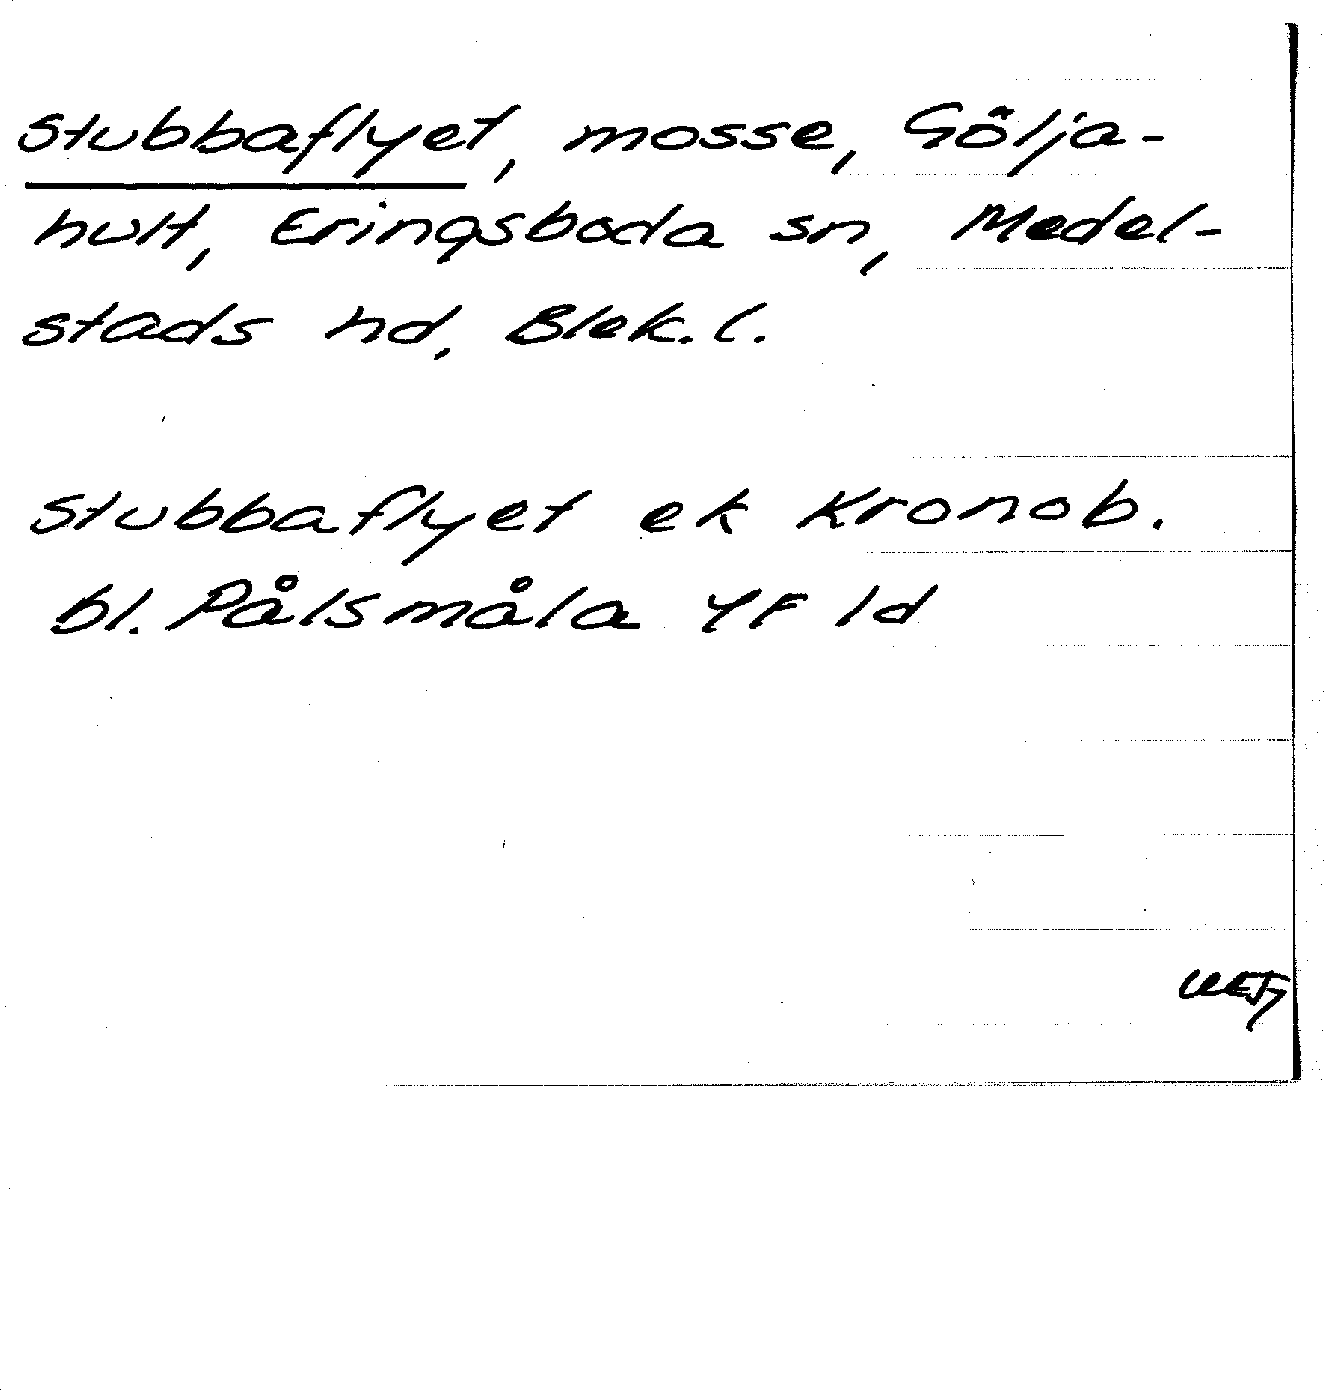 Stubbaflyet, mosse, Gölja-
hult, Eringsboda sn, Medel-
stads hd, Blek. l.
Stubbaflyet ek Kronob.
bl. Pålsmåla 4F 1d